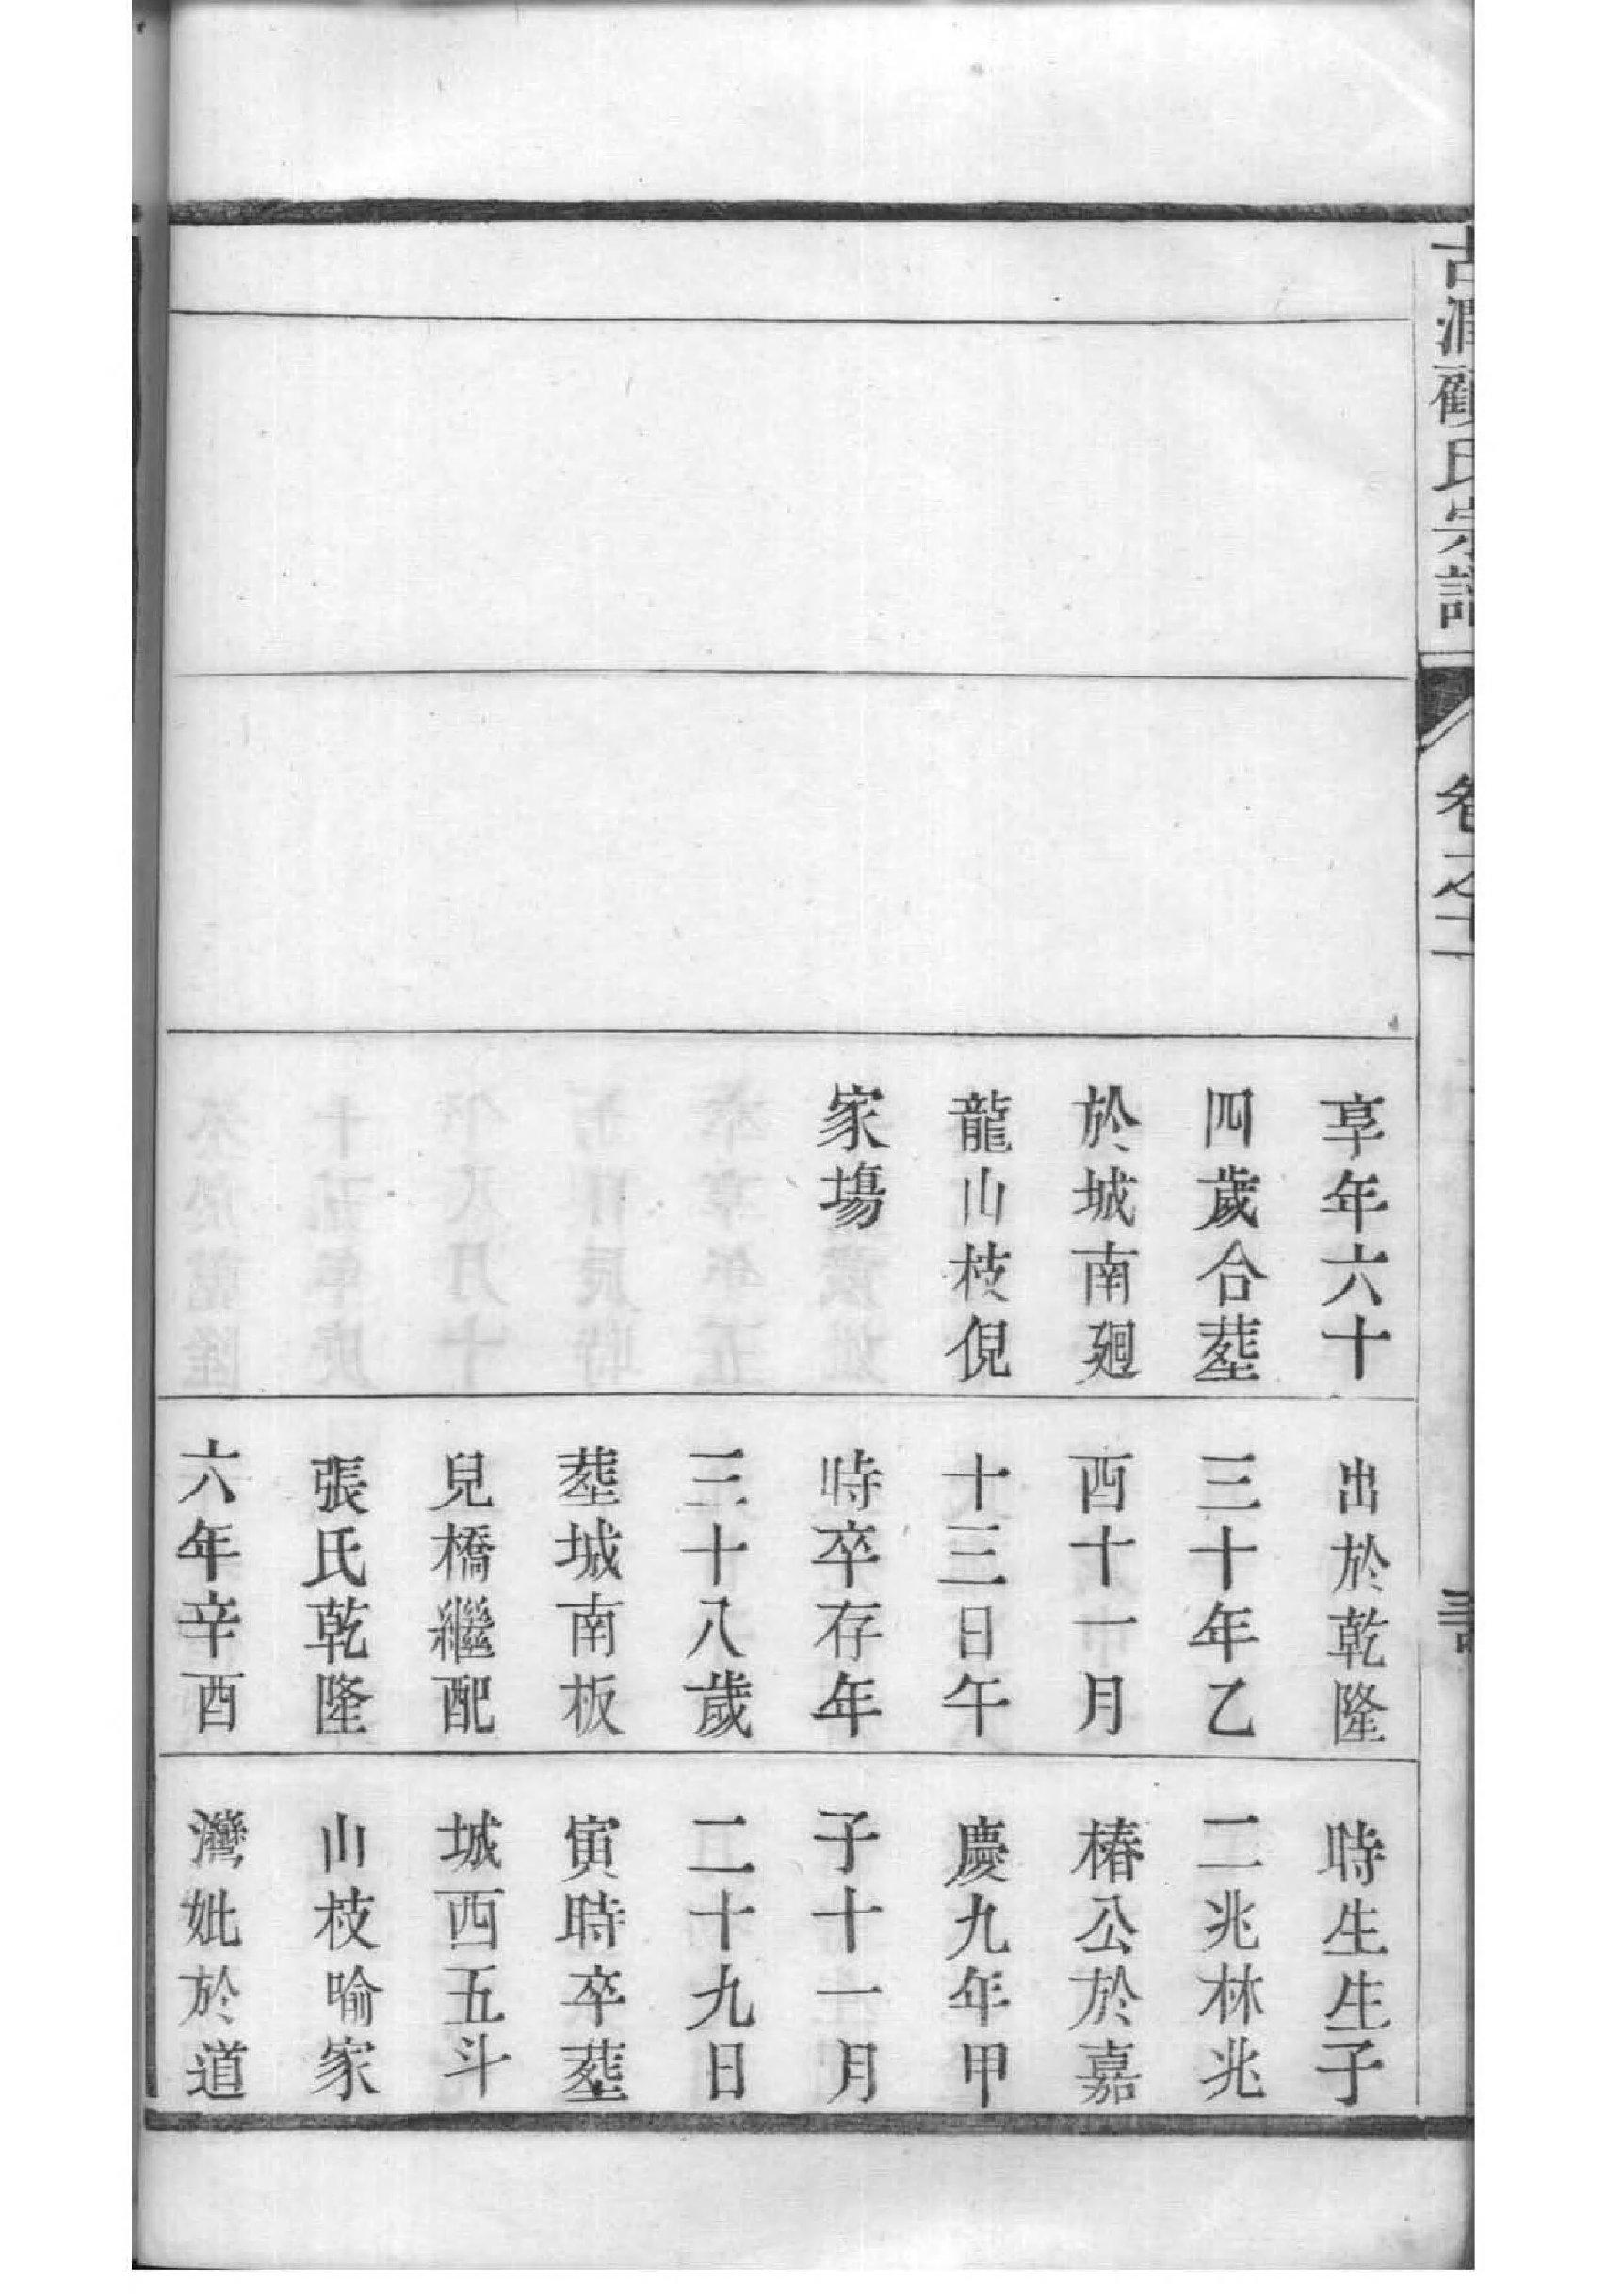 古潤顧氏宗譜
卷之十一
享年六十
四歲合塟
於城南廻
龍山枝倪
家塲
出於乾隆
三十年乙
酉十一月
十三日午
時卒存年
三十八歲
塟城南板
兒橋繼配
張氏乾隆
六年辛酉
時生生子
二兆林兆
椿公於嘉
慶九年甲
子十一月
二十九日
寅時卒塟
城西五斗
山枝喻家
灣妣於道